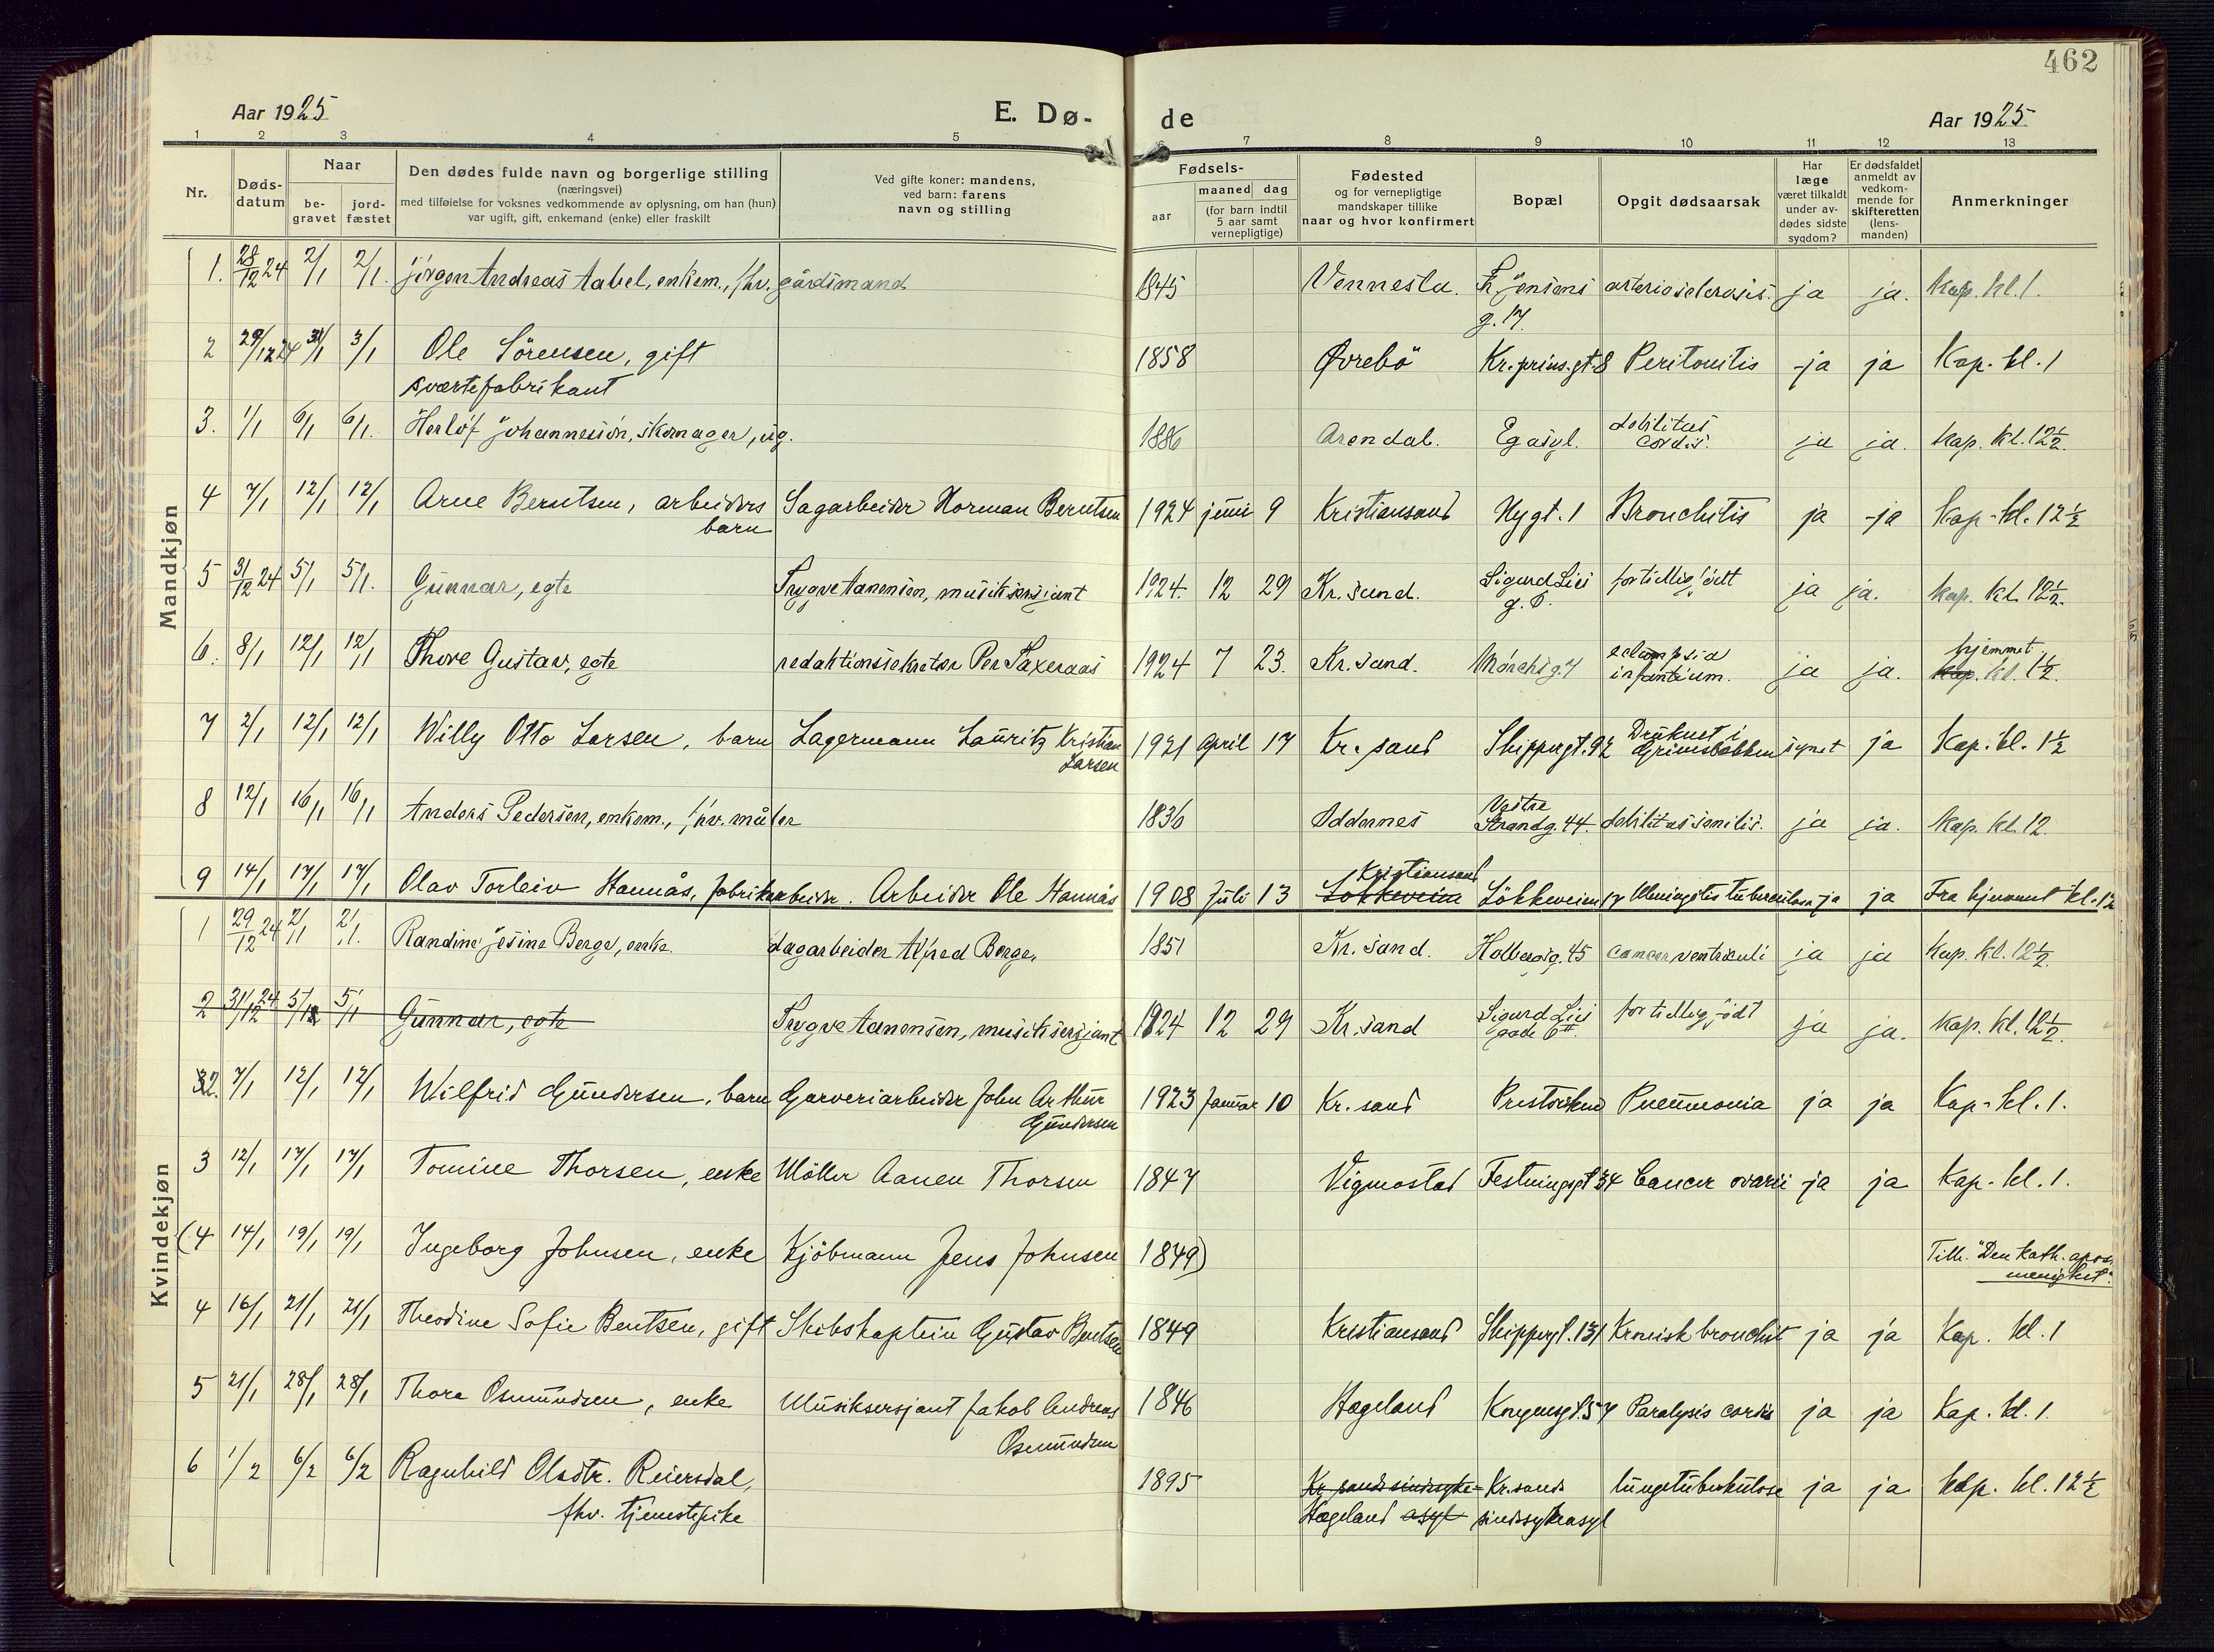 462
Aar 1925
E. Dø-
de
Aar 1925
1 2 3 4 5 6 7 8 9 10 11 12 13
Nr.
Døds-
datum
Naar
be-
gravet
jord-
fæstet
Den dødes fulde navn og borgerlige stilling
(næringsvei)
med tilføielse for voksnes vedkommende av oplysning, om han (hun)
var ugift, gift, enkemand (enke) eller fraskilt
Ved gifte koner: mandens,
ved barn: farens
navn og stilling
Fødsels-
aar
maaned dag
(for barn indtil
5 aar samt
vernepligtige)
Fødested
og for vernepligtige
mandskaper tillike
naar og hvor konfirmert
Bopæl
Opgit dødsaarsak
Har
læge
været tilkaldt
under av-
dødes sidste
sygdom?
Er dødsfaldet
anmeldt av
vedkom-
mende for
skifteretten
(lens-
manden)
Anmerkninger
Mandkjøn
1. 28/12 24 2/1 2/1. Jörgen Andreas Aabel, enkem., fhv. gårdsmand 1845 Vennesla. Jensens arteriosclerosis. ja ja. Kap. kl. 1.
g. 17.
2 29/12 24 3/1 3/1 Ole Sörensen, gift 1858 Øvrebö Kr. prins. gt. 8 Peritonitis ja ja Kap. kl. 1
sværtefabrikant
3. 1/1 6/1 6/1. Herlöf Johannesson, skomager, ug. 1886 Arendal. Egasyl. debilitas cordis. ja ja. Kap. kl. 12½.
4 7/1 12/1 12/1 Arne Berntsen, arbeiders Sagarbeider Norman Berntsen 1924 juni 9 Kristiansand Nygt. 1 Bronchitis ja ja Kap. kl. 12½
barn
5 31/12 24 5/1 5/1. Gunnar, egte Trygve Aanensen, musiksersjant 1924. 12 29 Kr. sand. Sigurd Lies for tidlig födt ja ja. Kap. kl. 12½.
g. 6.
6. 8/1 12/1 12/1 Thore Gustav, egte redaktionssekretær Per Saxeraas 1924 7 23. Kr. sand. Mörchsg. 7 eclampsia infantium. ja ja. hjemmet
Kap. kl. 1½.
7 2/1 12/1 12/1 Willy Otto Larsen, barn Lagermann Lauritz Kristian 1921 April 17 Kr. sand Skippergt. 92 Druknet i Grimsbækken synet ja Kap. kl. 1½
Larsen
8 12/1 16/1 16/1 Anders Pedersen, enkem., fhv. måler 1836 Oddernes Vestre Strandg. 44. debilitas senilis. ja ja. Kap. kl. 12.
9 14/1 17/1 17/1 Olav Torleiv Hannås, fabrikarbeider. Arbeider Ole Hannås 1908 Juli 13 Kristiansand Lökkeveien Lökkeveien 17 Meningitis tuberculosa ja ja Fra hjemmet kl. 12
Kvindekjøn
1 29/12 24 2/1 2/1. Randine Jesine Berge, enke. dagarbeider Alfred Berge, 1851 Kr. sand. Holbergsg. 45 cancer ventriculi ja ja Kap. kl. 12½.
2 31/12 24 5/1 5/1 Gunnar, egte Trygve Aanensen, musiksersjant 1924 12 29 Kr. sand Sigurd Lies for tidlig födt ja ja. Kap. kl. 12½.
gade 6
2. 7/1 12/1 12/1 Wilfrid Gundersen, barn Garveriarbeider John Arthur 1923 Januar 10 Kr. sand Pneumonia ja ja Kap. kl. 1.
Gundersen
3 12/1 17/1 17/1 Tomine Thorsen, enke Möller Aanen Thorsen 1847 Vigmostad Festningsgt 34 Cancer ovarii ja ja Kap. kl. 1.
(4 14/1 19/1 19/1 Ingeborg Johnsen, enke Kjöbmann Jens Johnsen 1849) Tilh. "Den kath. apos.
menighet".
4 16/1 21/1 21/1 Theodine Sofie Bentsen, gift Skibskaptein Gustav Bentsen 1849 Kristiansand Skippergt. 131 Kronisk bronchit ja ja Kap. kl. 1
5 21/1 28/1 28/1 Thora Osmundsen, enke Musiksersjant Jakob Andreas 1846 Hægeland Kongensgt. 57 Paralysis cordis ja ja Kap. kl. 1.
Osmundsen
6 1/2 6/2 6/2 Ragnhild Olsdtr. Reiersdal, 1895 Kr. sands sindssyke- Kr. sands lungetuberkulose ja ja Kap. kl. 12½
fhv. tjenestepike Hægeland asyl sindssykeasyl